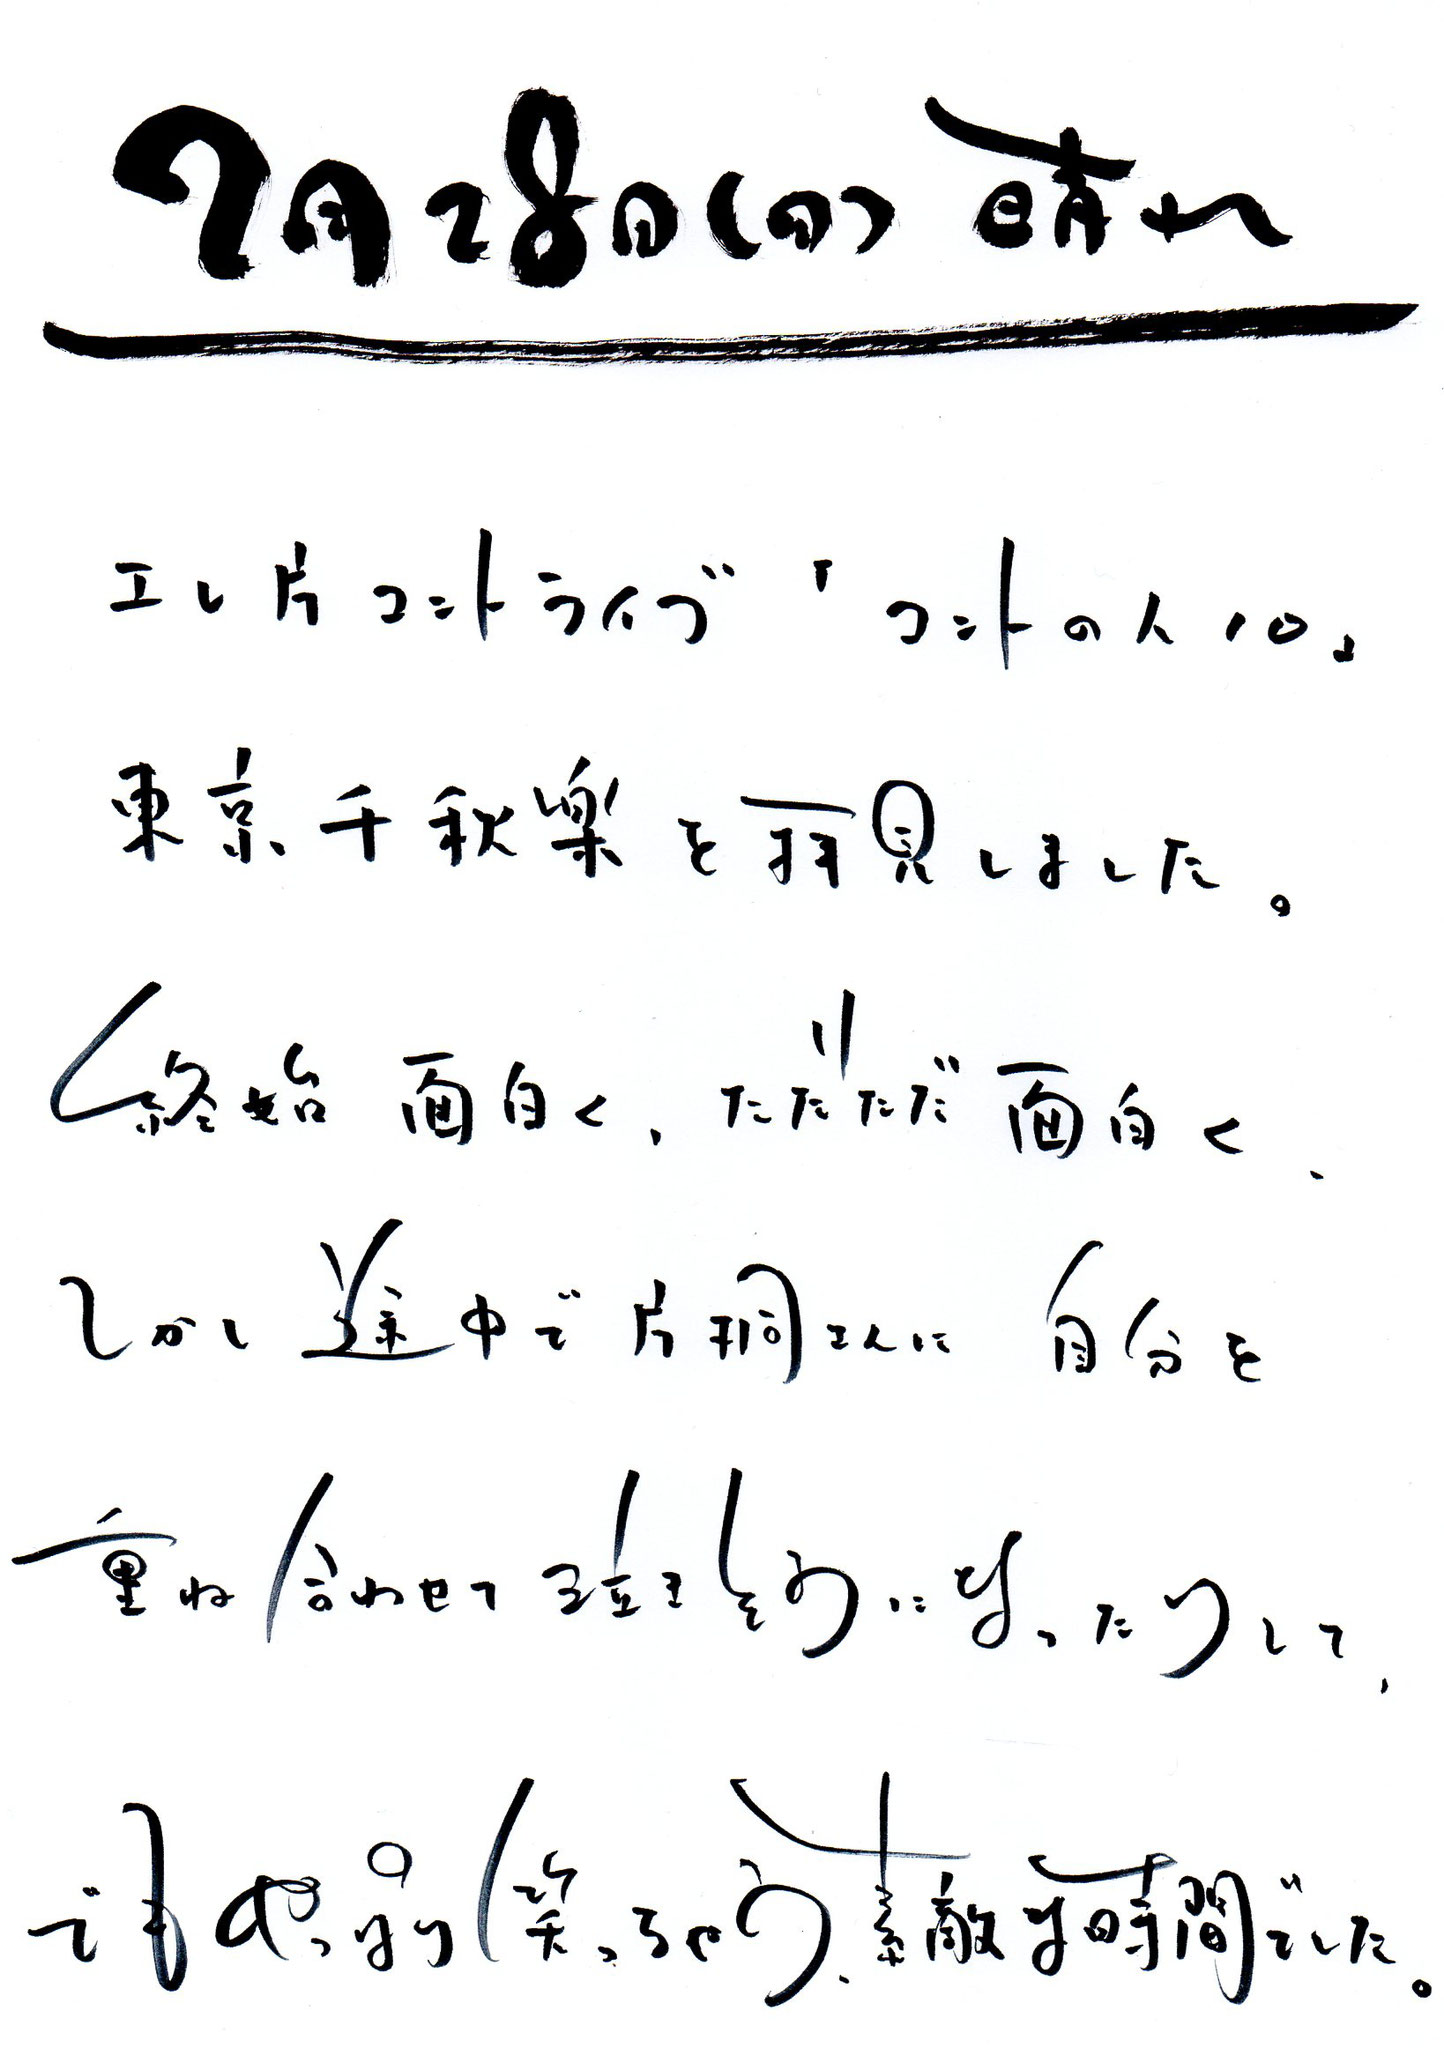 2月28日(日) 晴れ
エレ片コントライブ「コントの人10」
東京千秋楽を拝見しました。
終始面白く、ただただ面白く、
しかし途中で片桐さんに自分を
重ね合わせて泣きそうになったりして、
でもやっぱり笑っちゃう、素敵な時間でした。